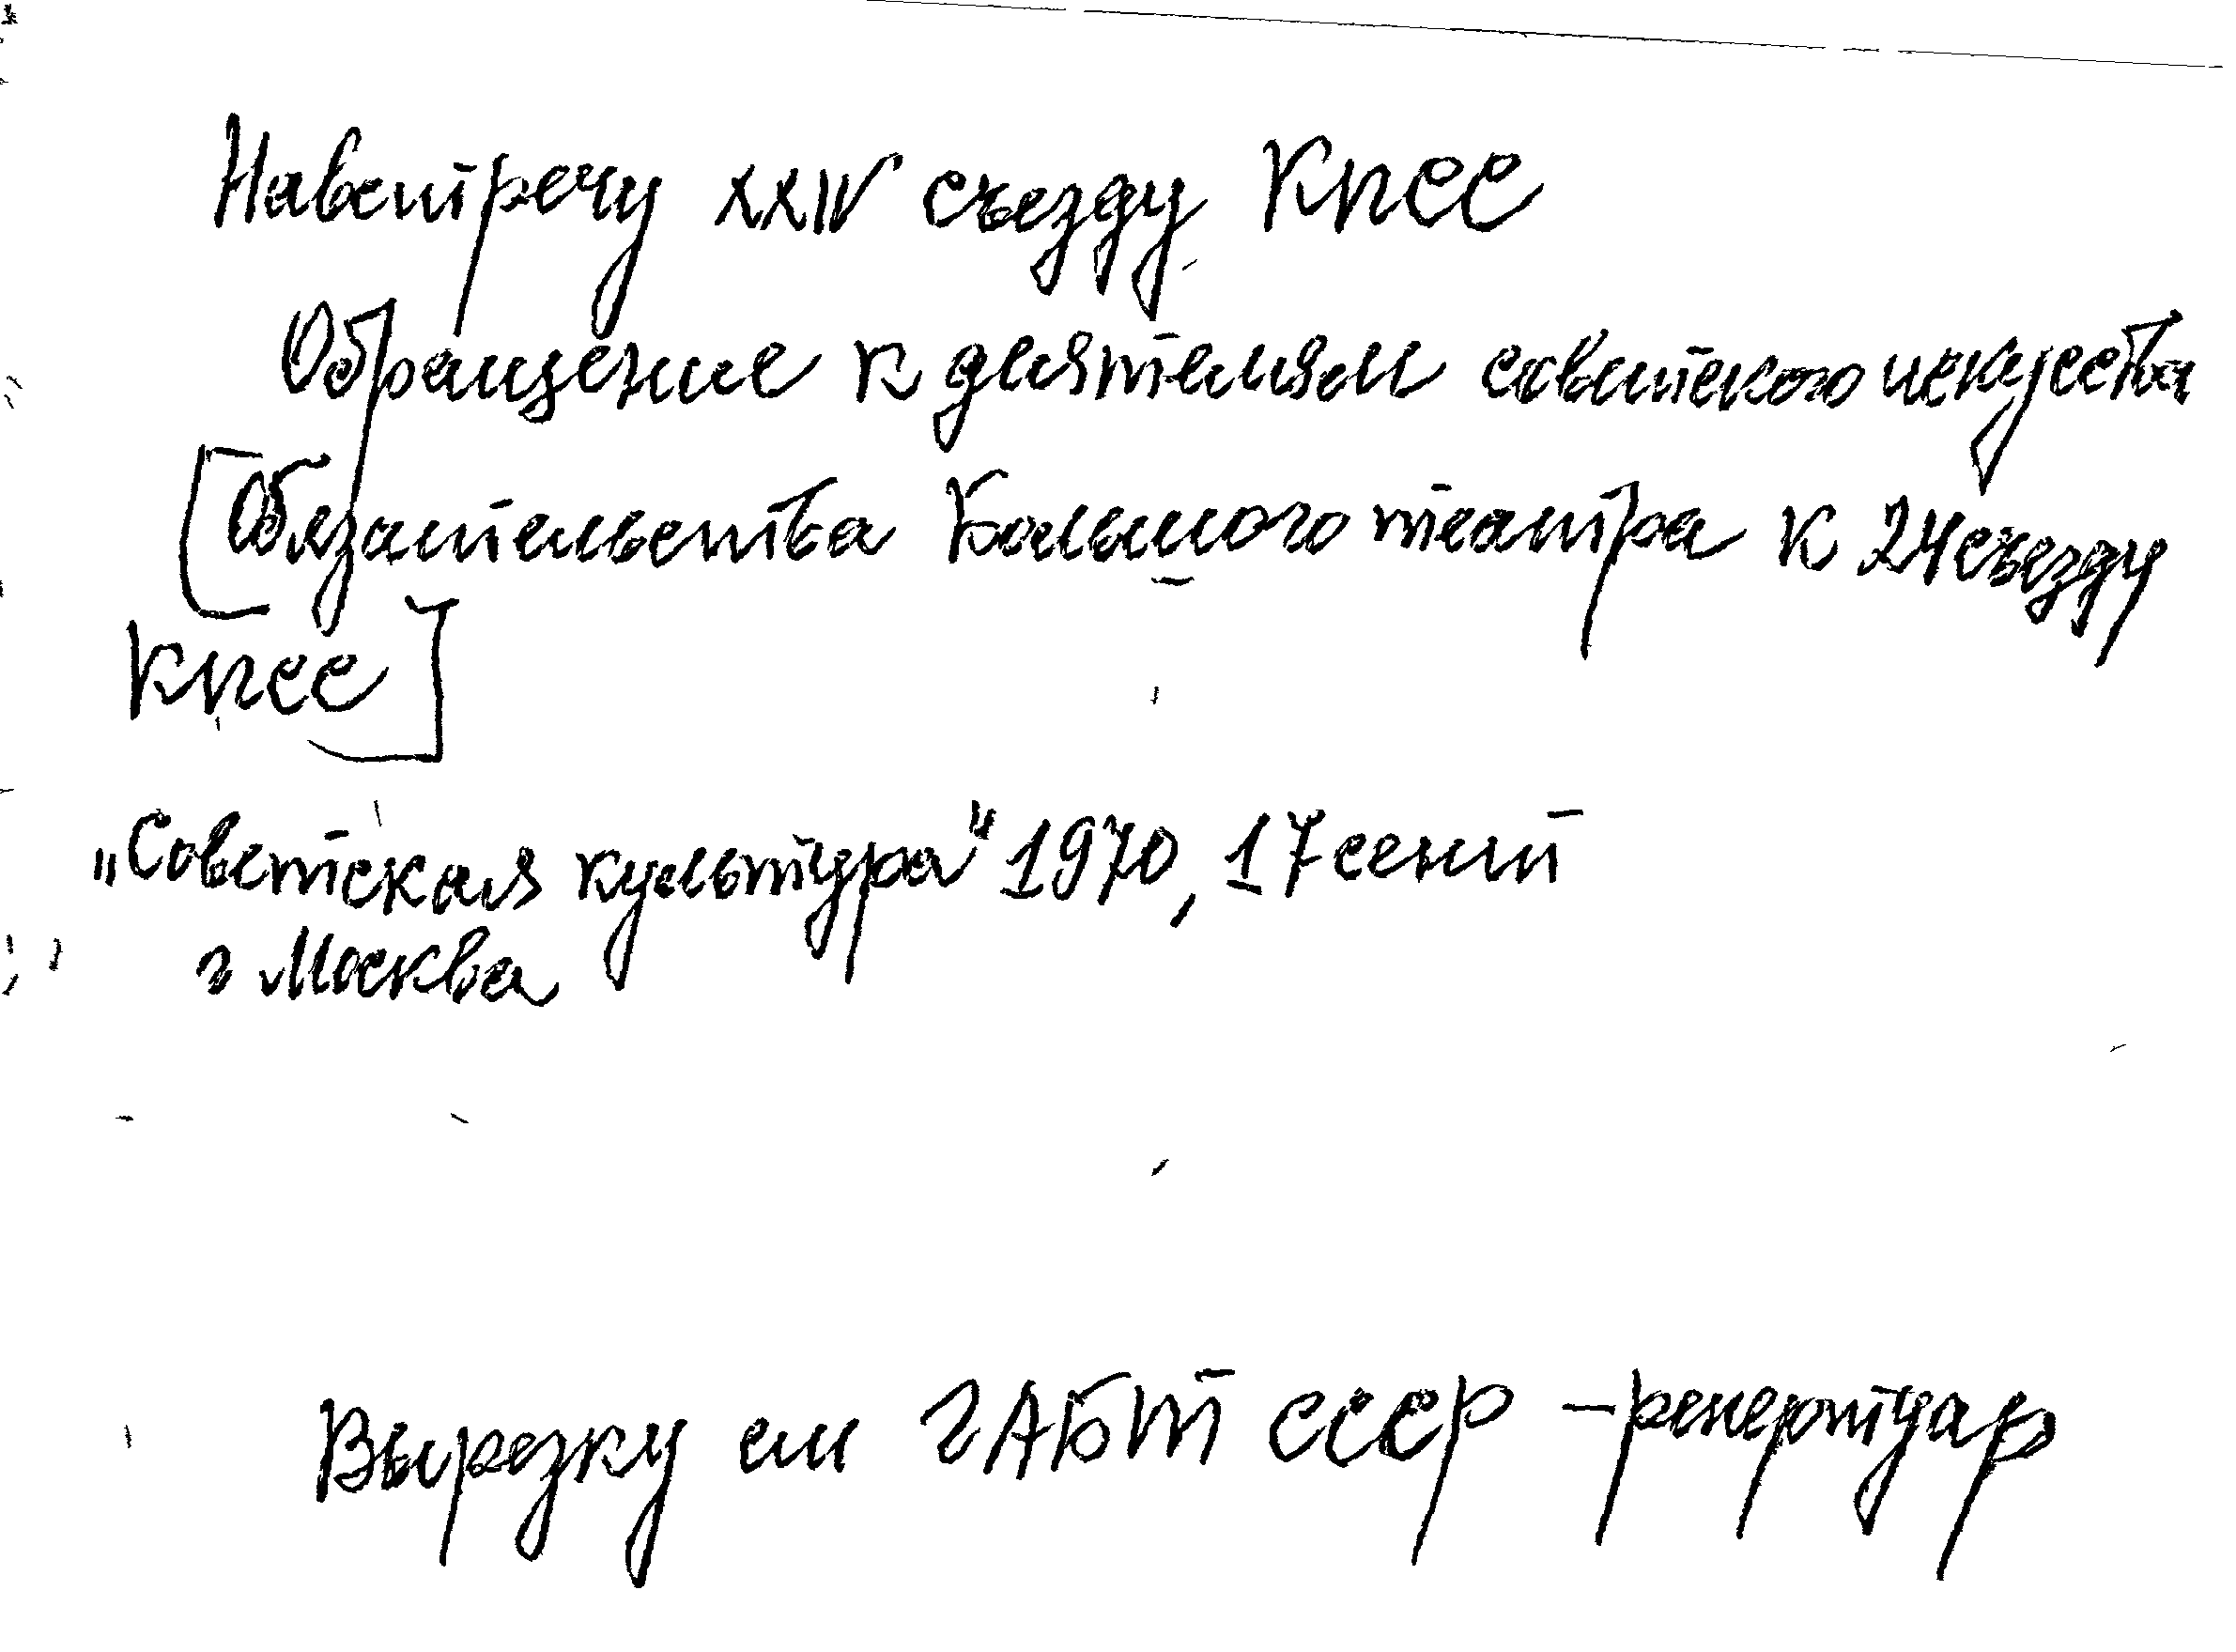 Навстречу XXIV съезду КПСС
Обращение к деятелям советского искусства
[Обязательства Большого театра к 24 съезду
КПСС]
„Советская культура" 1970, 17 сент
г Москва
Вырезку см ГАБТ СССР - репертуар